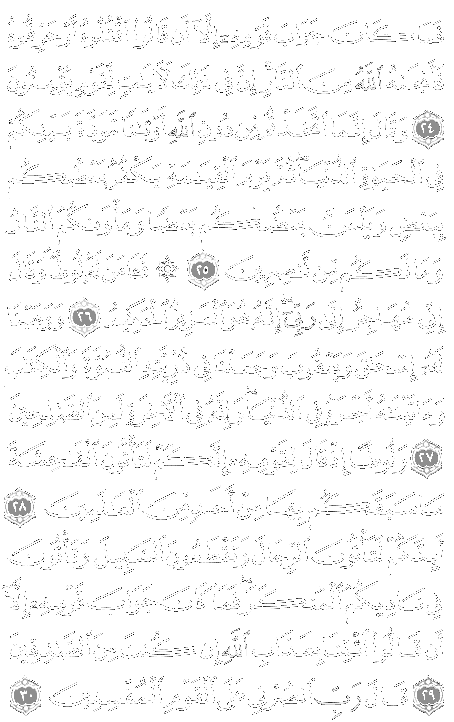 فَمَا كَانَ جَوَابَ قَوْمِهِۦٓ إِلَّآ أَن قَالُوا۟ ٱقْتُلُوهُ أَوْ حَرِّقُوهُ
فَأَنجَىٰهُ ٱللَّهُ مِنَ ٱلنَّارِ إِنَّ فِى ذَٰلِكَ لَـَٔايَـٰتٍ لِّقَوْمٍ يُؤْمِنُونَ
٢٤ وَقَالَ إِنَّمَا ٱتَّخَذْتُم مِّن دُونِ ٱللَّهِ أَوْثَـٰنًا مَّوَدَّةَ بَيْنِكُمْ
فِى ٱلْحَيَوٰةِ ٱلدُّنْيَا ثُمَّ يَوْمَ ٱلْقِيَـٰمَةِ يَكْفُرُ بَعْضُكُم
بِبَعْضٍ وَيَلْعَنُ بَعْضُكُم بَعْضًا وَمَأْوَىٰكُمُ ٱلنَّارُ
وَمَا لَكُم مِّن نَّـٰصِرِينَ ٢٥ ۞ فَـَٔامَنَ لَهُۥ لُوطٌ وَقَالَ
إِنِّى مُهَاجِرٌ إِلَىٰ رَبِّىٓ إِنَّهُۥ هُوَ ٱلْعَزِيزُ ٱلْحَكِيمُ ٢٦ وَوَهَبْنَا
لَهُۥٓ إِسْحَـٰقَ وَيَعْقُوبَ وَجَعَلْنَا فِى ذُرِّيَّتِهِ ٱلنُّبُوَّةَ وَٱلْكِتَـٰبَ
وَءَاتَيْنَـٰهُ أَجْرَهُۥ فِى ٱلدُّنْيَا وَإِنَّهُۥ فِى ٱلْـَٔاخِرَةِ لَمِنَ ٱلصَّـٰلِحِينَ
٢٧ وَلُوطًا إِذْ قَالَ لِقَوْمِهِۦٓ إِنَّكُمْ لَتَأْتُونَ ٱلْفَـٰحِشَةَ
مَا سَبَقَكُم بِهَا مِنْ أَحَدٍ مِّنَ ٱلْعَـٰلَمِينَ ٢٨
أَئِنَّكُمْ لَتَأْتُونَ ٱلرِّجَالَ وَتَقْطَعُونَ ٱلسَّبِيلَ وَتَأْتُونَ
فِى نَادِيكُمُ ٱلْمُنكَرَ فَمَا كَانَ جَوَابَ قَوْمِهِۦٓ إِلَّآ
أَن قَالُوا۟ ٱئْتِنَا بِعَذَابِ ٱللَّهِ إِن كُنتَ مِنَ ٱلصَّـٰدِقِينَ
٢٩ قَالَ رَبِّ ٱنصُرْنِى عَلَى ٱلْقَوْمِ ٱلْمُفْسِدِينَ ٣٠